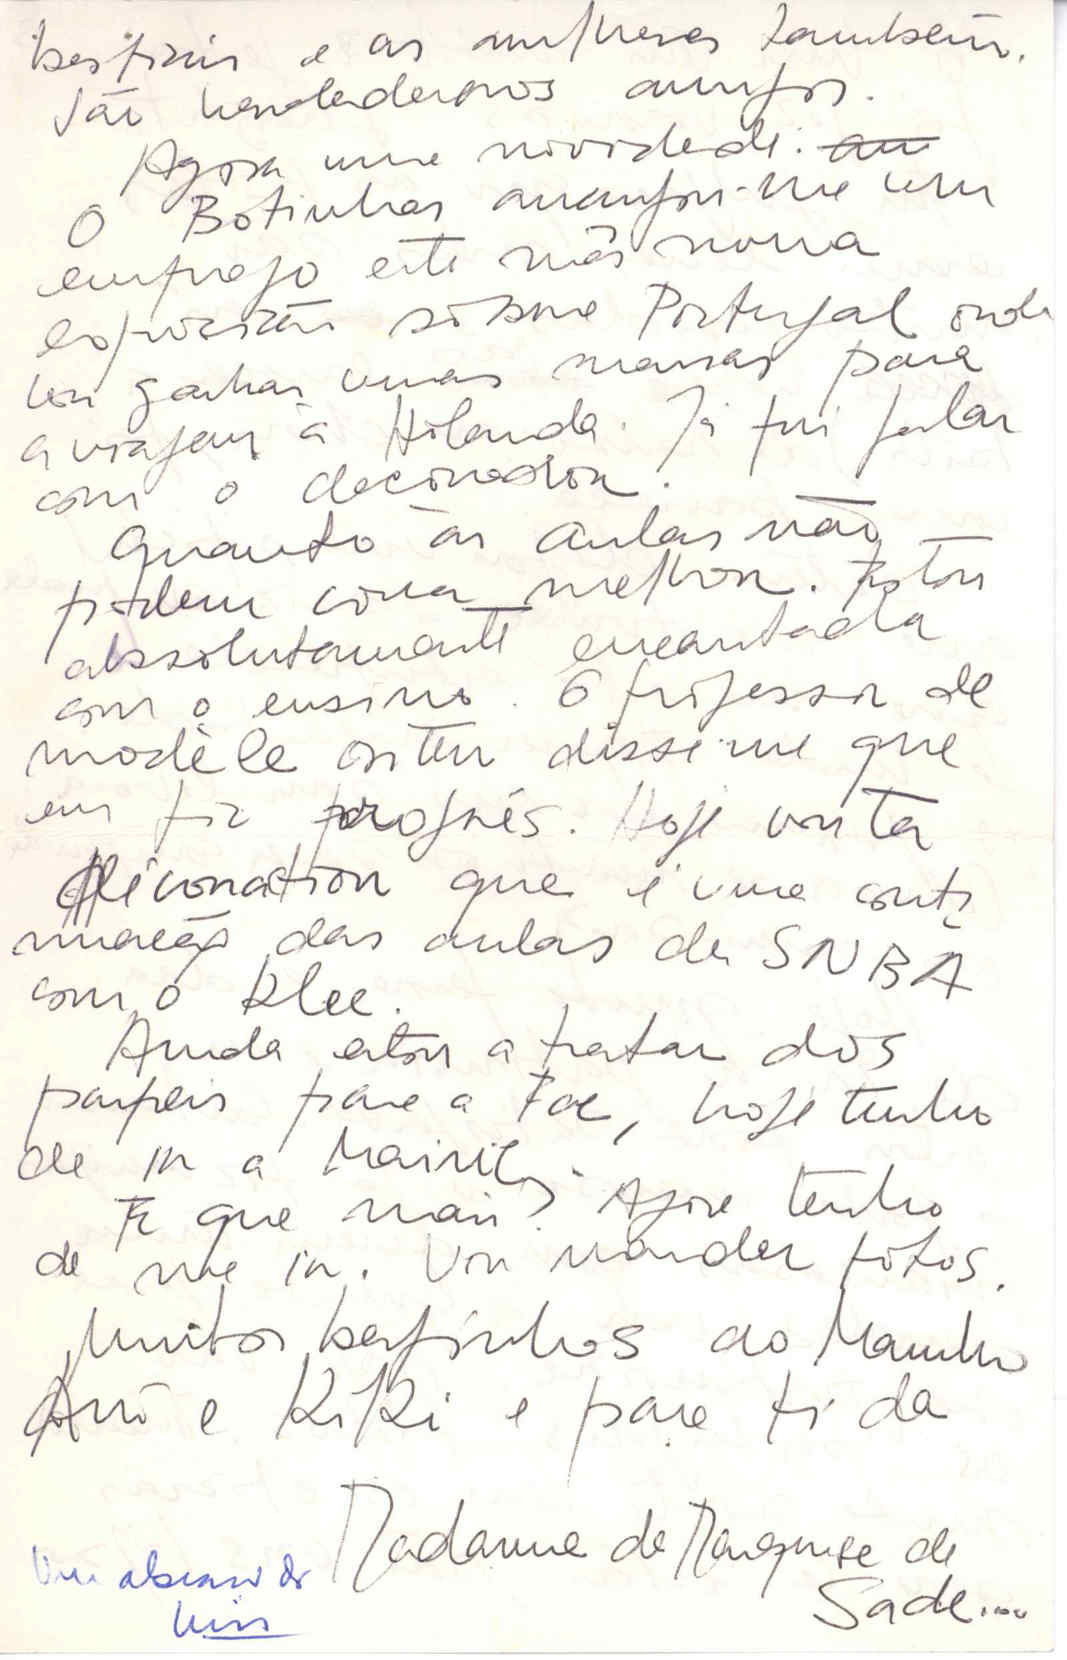 bestiais e as mulheres também.
São verdadeiros amigos.
Agora uma novidade: an
O Botinhas arranjou-me um
emprego este mês numa
exposição sôbre Portugal onde
vou ganhar umas massas para
a viagem à Holanda. Já fui falar
com o decorador.
Quanto às aulas não
podem correr melhor. Estou
absolutamente encantada
com o ensino. O professor de
modèle ontem disse-me que
eu fiz progrés. Hoje volta
décoration que é uma conti
nuação das aulas da SNBA
com o Klee.
Ainda estou a tratar dos
papeis para a Fac, hoje tenho
de ir a Mairie.
E que mais? Agora tenho
de me ir. Vou mandar fotos.
Muitos beijinhos ao
Avô e Kiki e para ti da
Madame de Marquise de
Sade....
Um abraço do
Luis